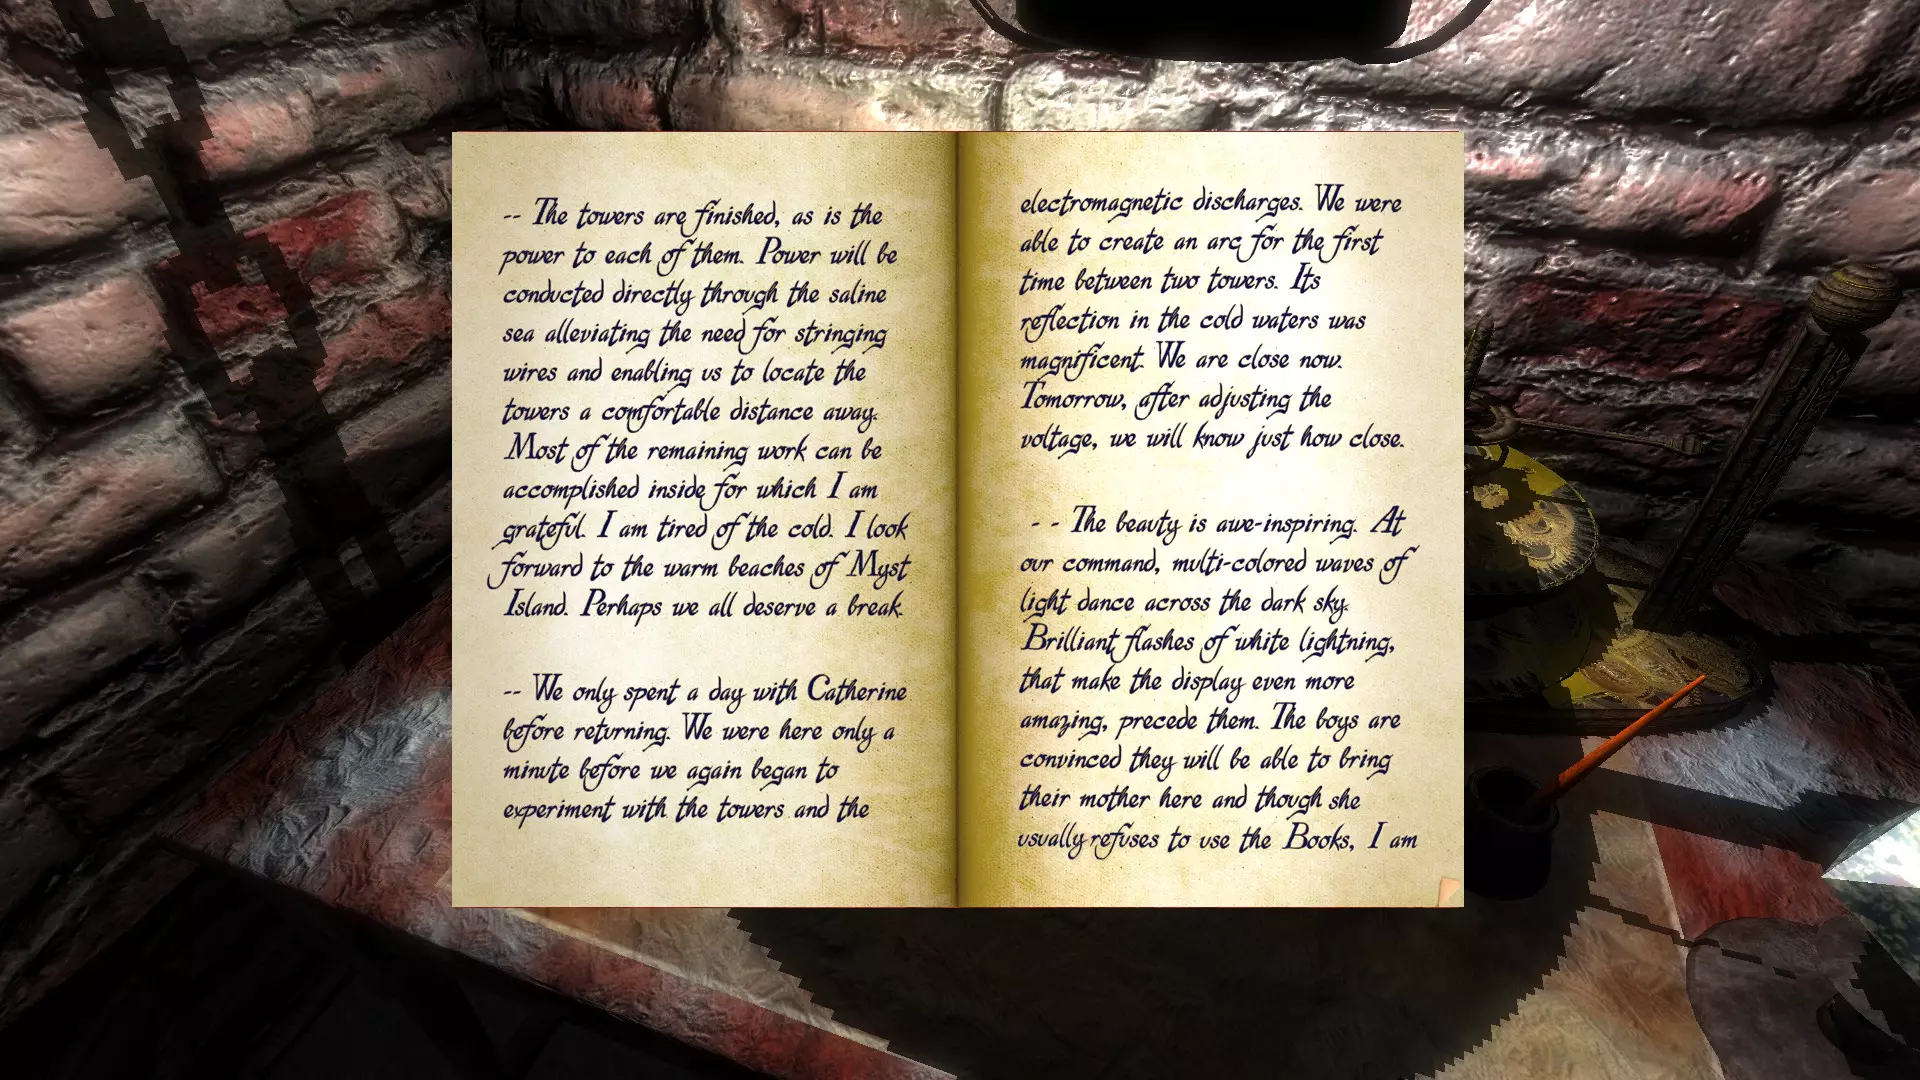 -- The towers are finished, as is the
power to each of them. Power will be
conducted directly through the saline
sea alleviating the need for stringing
wires and enabling us to locate the
towers a comfortable distance away.
Most of the remaining work can be
accomplished inside for which I am
grateful. I am tired of the cold. I look
forward to the warm beaches of Myst
Island. Perhaps we all deserve a break.
-- We only spent a day with Catherine
before returning. We were here only a
minute before we again began to
experiment with the towers and the
electromagnetic discharges. We were
able to create an arc for the first
time between two towers. Its
reflection in the cold waters was
magnificent. We are close now.
Tomorrow, after adjusting the
voltage, we will know just how close.
- - The beauty is awe-inspiring. At
our command, multi-colored waves of
light dance across the dark sky.
Brilliant flashes of white lightning,
that make the display even more
amazing, precede them. The boys are
convinced they will be able to bring
their mother here and though she
usually refuses to use the Books, I am